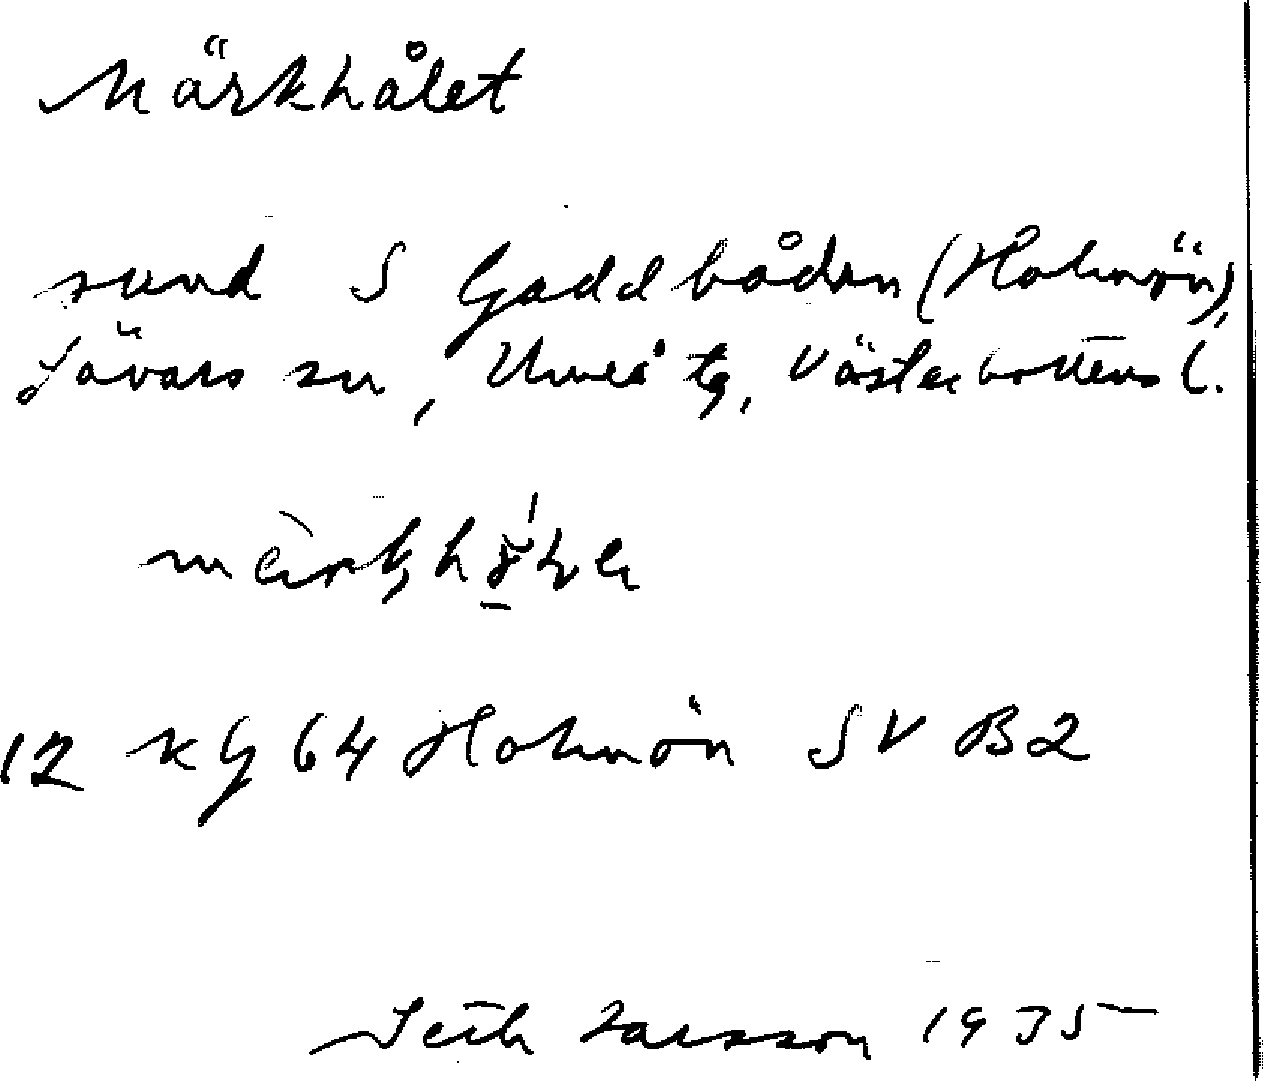 Märkhålet
sund S Gaddbådan (Holmön),
Sävars sn, Umeå tg, Västerbottens l.
12 KG 64 Holmön SV B2
Seth Larsson 1935